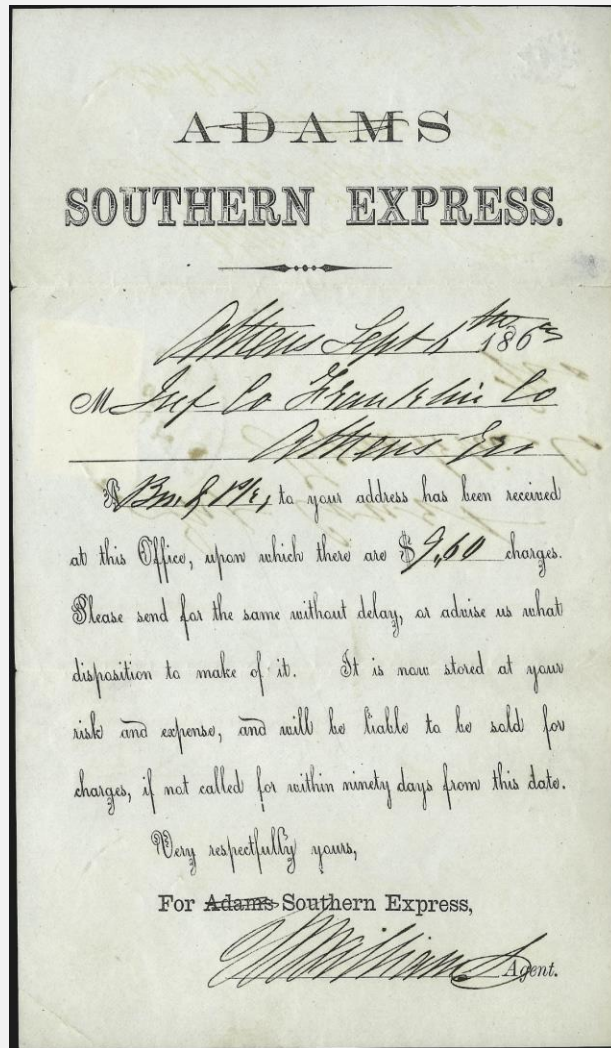 ADAMS
SOUTHERN EXPRESS.
Athens Sept 1863
M Inf Co Franklin Co
Athens Geo
A to your address has been received
at this Office, upon which there are $9,60 charges.
Please send for the same without delay, or advise us what
disposition to make of it. It is now stored at your
risk and expense, and will be liable to be sold for
charges, if not called for within ninety days from this date.
Very respectfully yours,
For Adams Southern Express,
Williams Agent.